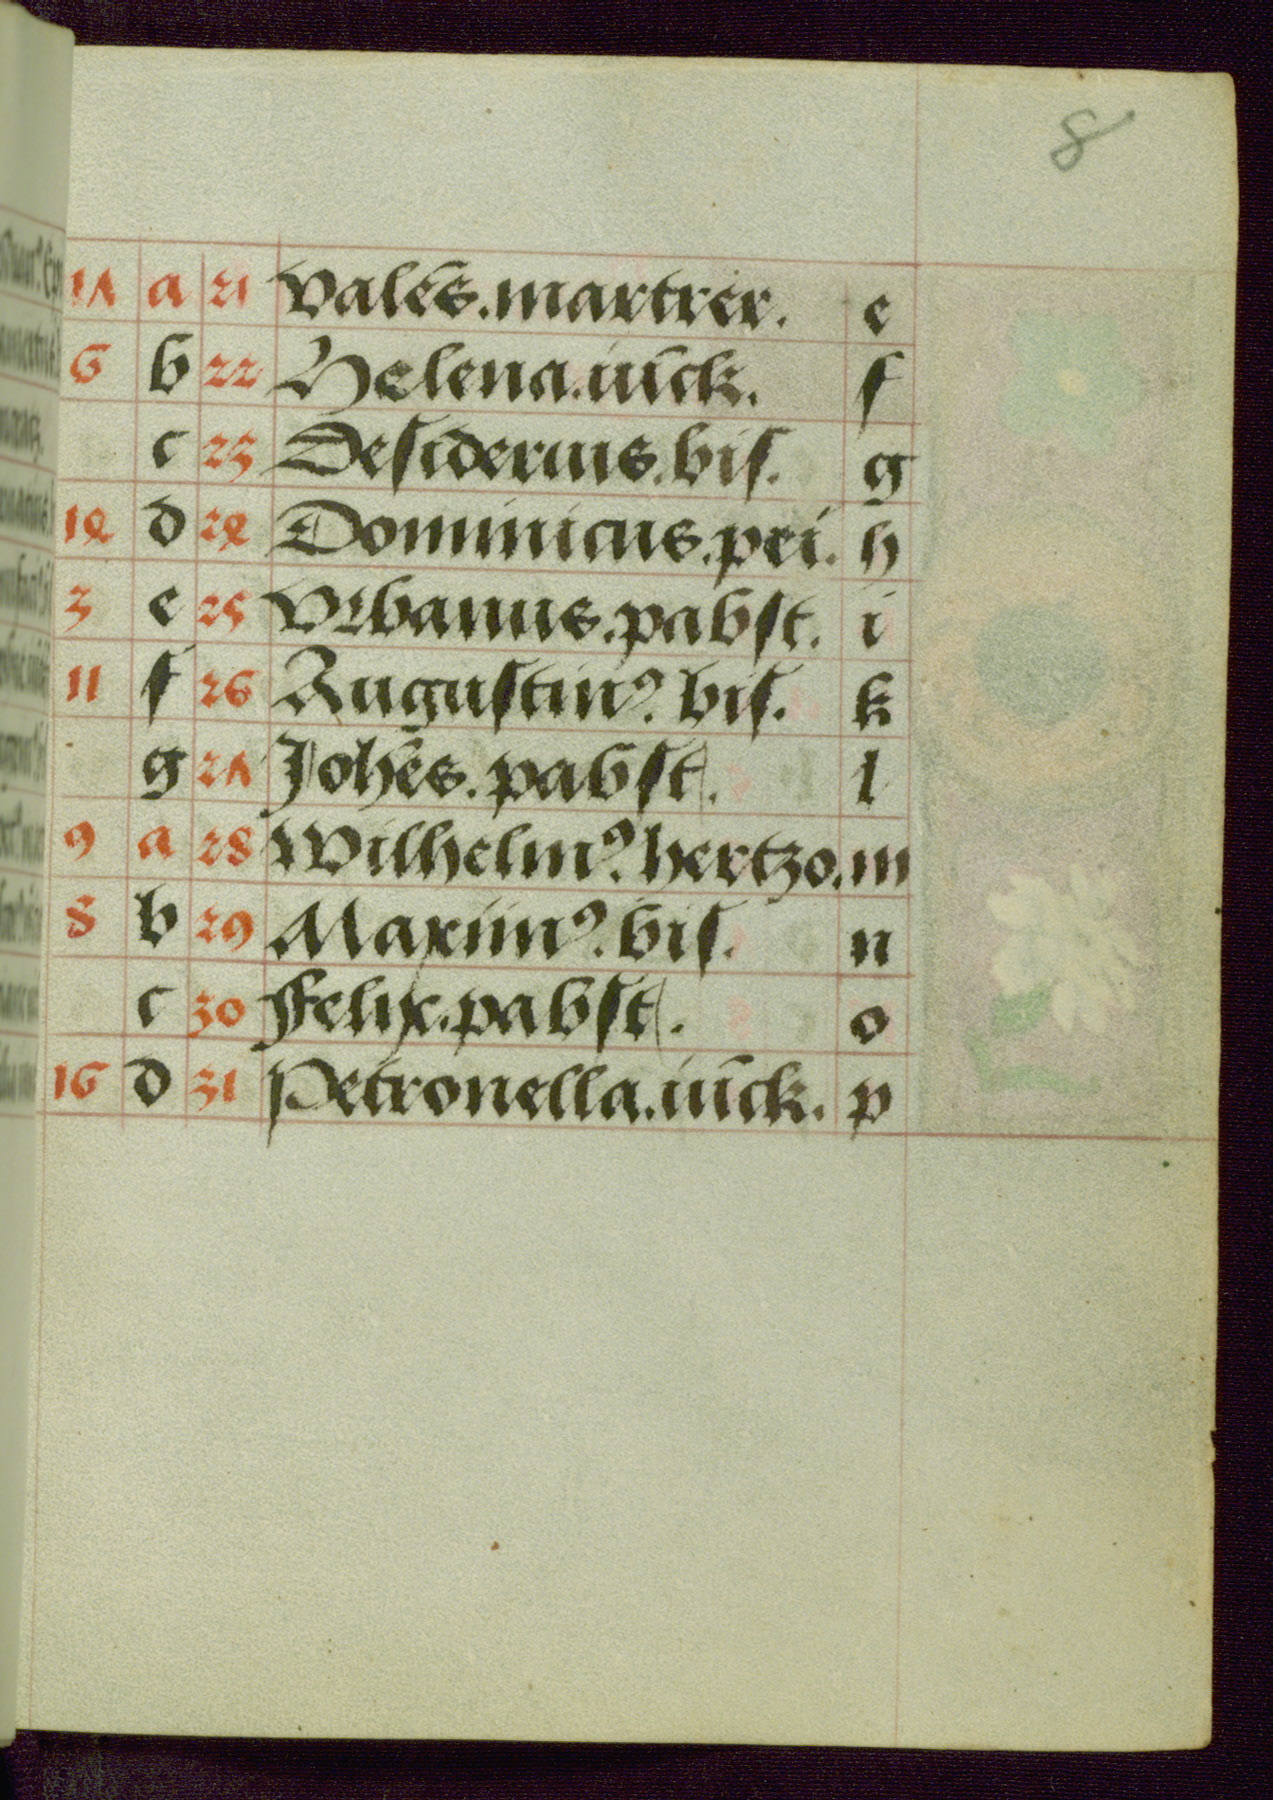 8
17 a 21 Valēs. martrer. e
6 b 22 Helena. iūck. f
c 23 Desiderius. bis. g
14 d 24 Dominicus. pei. h
3 e 25 Vrbanus. pabst. i
11 f 26 Augustinꝰ. bis. k
g 27 Johēs. pabst. l
9 a 28 Wilhelmꝰ. hertzo. m
8 b 29 Maximꝰ. bis. n
c 30 Felix. pabst. o
16 d 31 Petronella. iūck. p